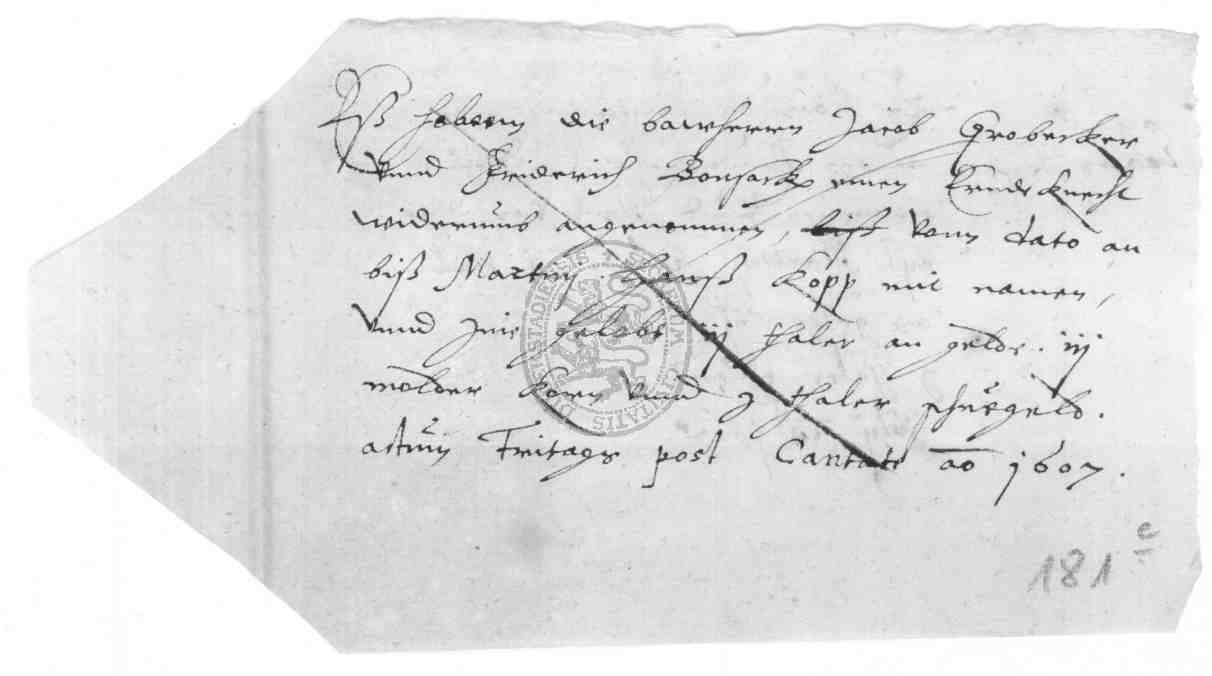 Eß haben die bawherrn Jacob Grobecker
vnnd Friderich Bonsack einen Erndeknecht
widerumb angenommen, biß vonn dato an
biß Martinj. Hanß Kopp mit namen,
vnnd Ime gelobt iij thaler an gelde. iij
molder Korn vnnd j thaler schugeld.
actum Freitags post Cantate ao 1607.
181 e